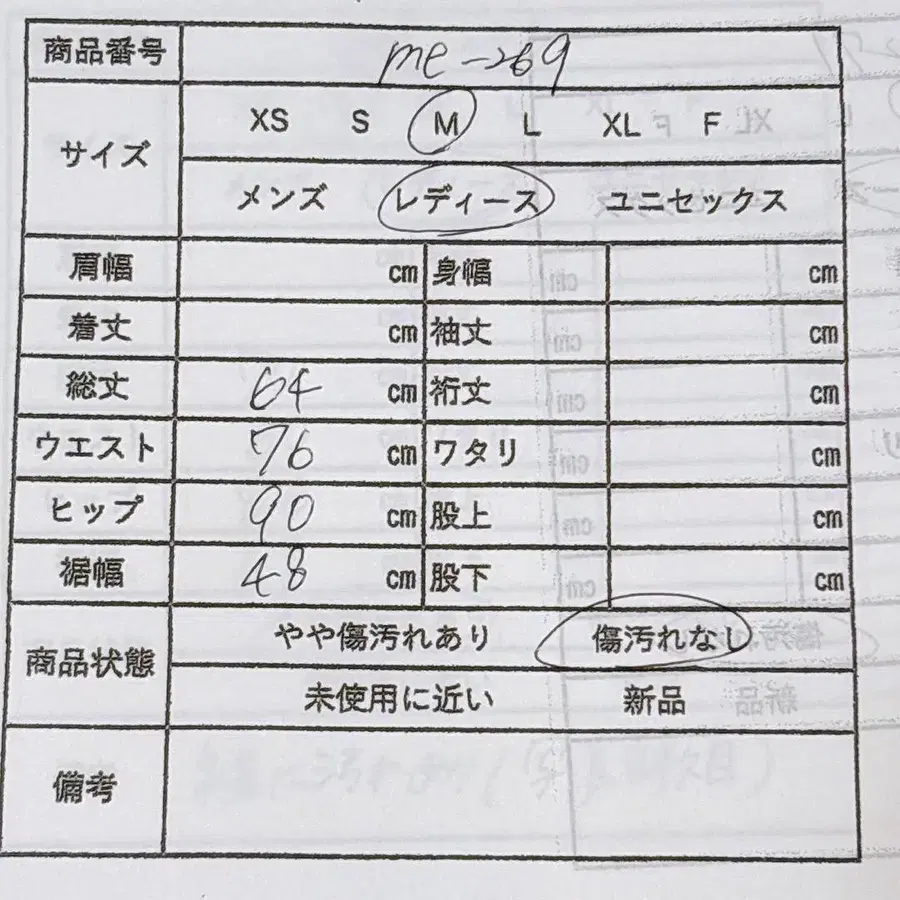 商品番号 me-269
サイズ XS S M L XL F
メンズ レディース ユニセックス
肩幅 cm 身幅 cm
着丈 cm 袖丈 cm
総丈 64 cm 裄丈 cm
ウエスト 76 cm ワタリ cm
ヒップ 90 cm 股上 cm
裾幅 48 cm 股下 cm
商品状態 やや傷汚れあり 傷汚れなし
未使用に近い 新品
備考